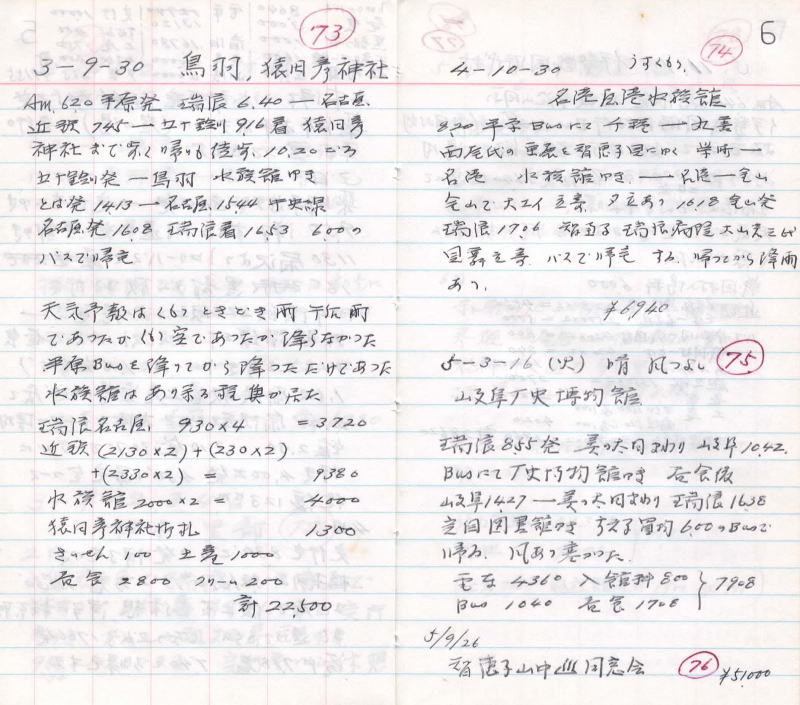 73
3-9-30 鳥羽,猿田彦神社
Am.620 平原発 瑞浪6.40 ― 名古屋.
近鉄 745 ― 五十鈴川 916着 猿田彦
神社まで歩く帰りも徒歩. 10.20ごろ
五十鈴川発 ― 鳥羽 水族館ゆき
とば発 1413 ― 名古屋 1544 中央線
名古屋発 1608 瑞浪着 1653 600の
バスで帰宅
天気予報はくもりときどき雨 午后雨
であったがくもり空であったが降らなかった
平原Busを降りてから降っただけであった
水族館はあり余る程魚が居た
瑞浪名古屋. 930×4 =3720
近鉄 (2130×2)+(230×2)
+(2330×2) = 9380
水族館 2000×2 = 4000
猿田彦神社 札 1300
きっさてん 100 土産 1000
昼食 2800 クリーム 200
計 22,500
6
74
4-10-30 うすぐもり.
名港 水族館
820 平原Busにて
名港 水族館ゆき. ― 名港 ― 金山
金山で 1618 金山発
瑞浪 1706 瑞浪病院
バスで帰宅 する. 帰ってから降雨
あり.
¥6940
5-3-16 (火) 晴 風つよし 75
岐阜歴史博物館
瑞浪 855発 美の太田まわり 岐阜 1042.
Busにて歴史博物館ゆき 昼食後
岐阜 1427 ― 美の太田まわり 瑞浪 1638
図書館ゆき 600のBusで
帰る. 風あり寒かった.
電車 4360 入館料 800 } 7908
Bus 1040 昼食 1708
5/9/26
智恵子山中 同窓会 76 ¥51,000